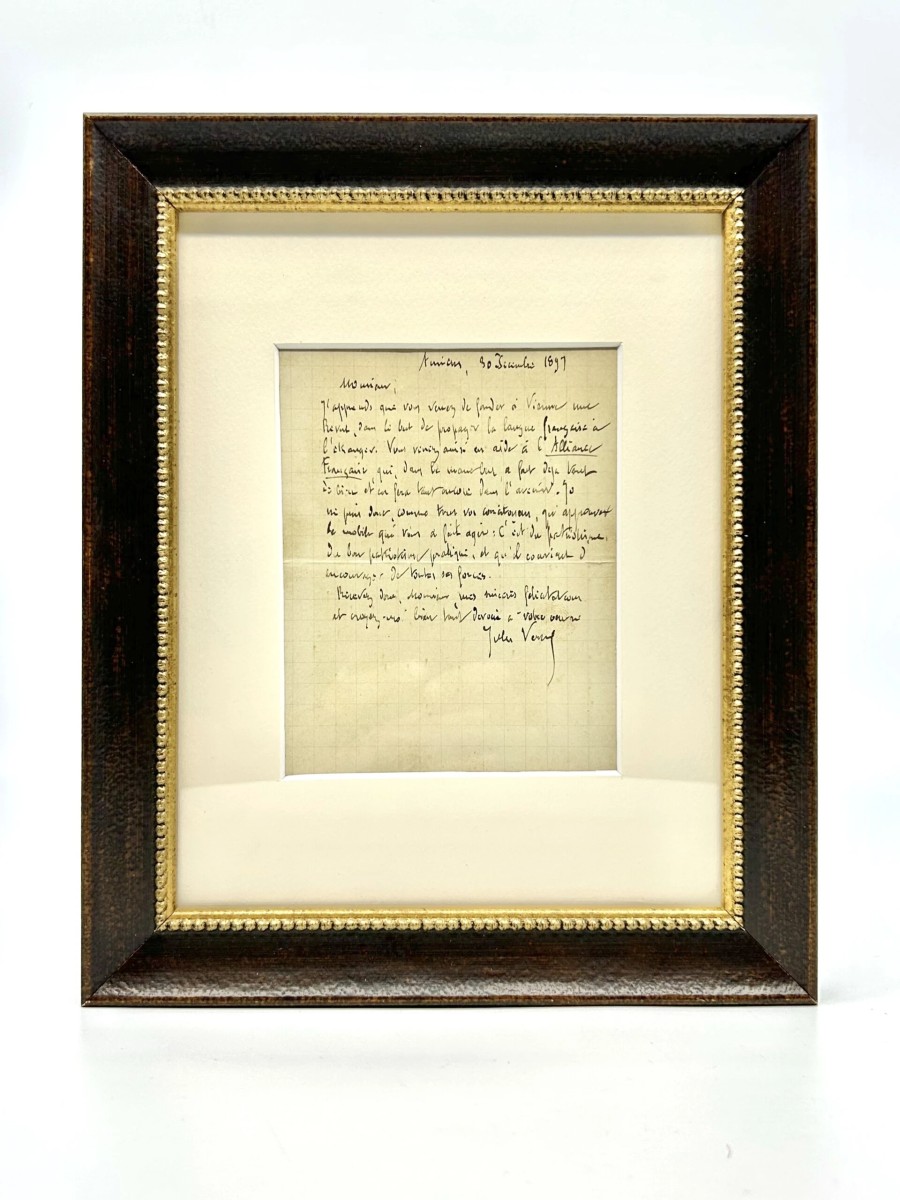 Amiens, 30 Décembre 1897
Monsieur,
J'apprends que vous venez de fonder à Vienne une
Revue, dans le but de propager la langue française à
l'étranger. Vous venez ainsi en aide à l'Alliance
Française qui, dans la même but, a fait déjà tant
de bien et en fera tant encore dans l'avenir. Je
ne puis donc, comme tous vos concitoyens, qu'approuver
le mobile qui vous a fait agir : C'est du patriotisme,
du bon patriotisme pratique, et qu'il convient d'
encourager de toutes ses forces.
Recevez donc, Monsieur, mes sincères félicitations
et croyez-moi bien tout dévoué à votre œuvre
Jules Verne